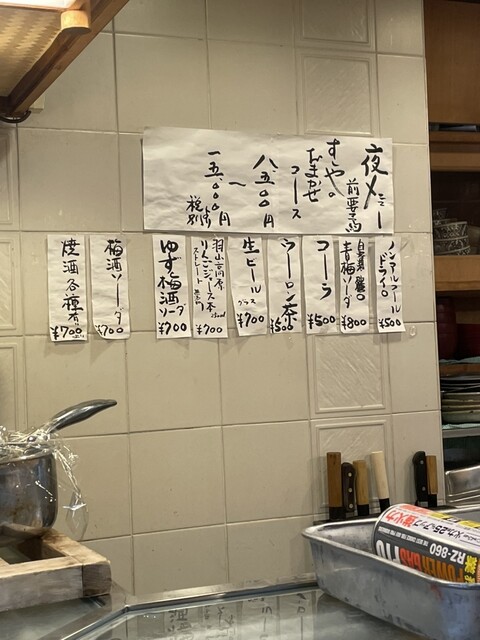 夜メニュー
前要予約
すごや。
おまかせ
コース
八五〇〇円
〜
一五、〇〇〇円
税別
ノンアルコール
ドライ
¥500
青梅ソーダ
¥800
コーラ
¥500
ウーロン茶
¥500
生ビール
グラス
¥700
りんごジュース
ストレート
¥700
ゆず梅酒
ソーダ
¥700
梅酒ソーダ
¥700
焼酒各種有
¥700
RZ-860
POWER GAS